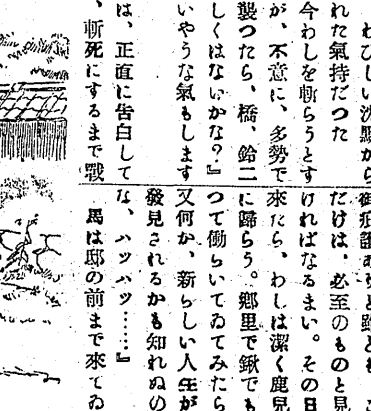 わびしい沈默から
れた氣持だつた
今わしを斬らうとす
が、不意に、多勢で
襲つたら、橋、鈴二
しくはないかな？』
いやうな氣もします
は、正直に告白して
、斬死にするまで戰
御庇護ありと雖ども、こ
だけは、必至のものと見
ければなるまい。その日
來たら、わしは潔く鹿兒
に歸らう。鄕里で鍬でも
つて働らいてゐてみたら
又何か、新らしい人生が
發見されるかも知れぬの
な、ハツハツ……。』
馬は邸の前まで來てゐ